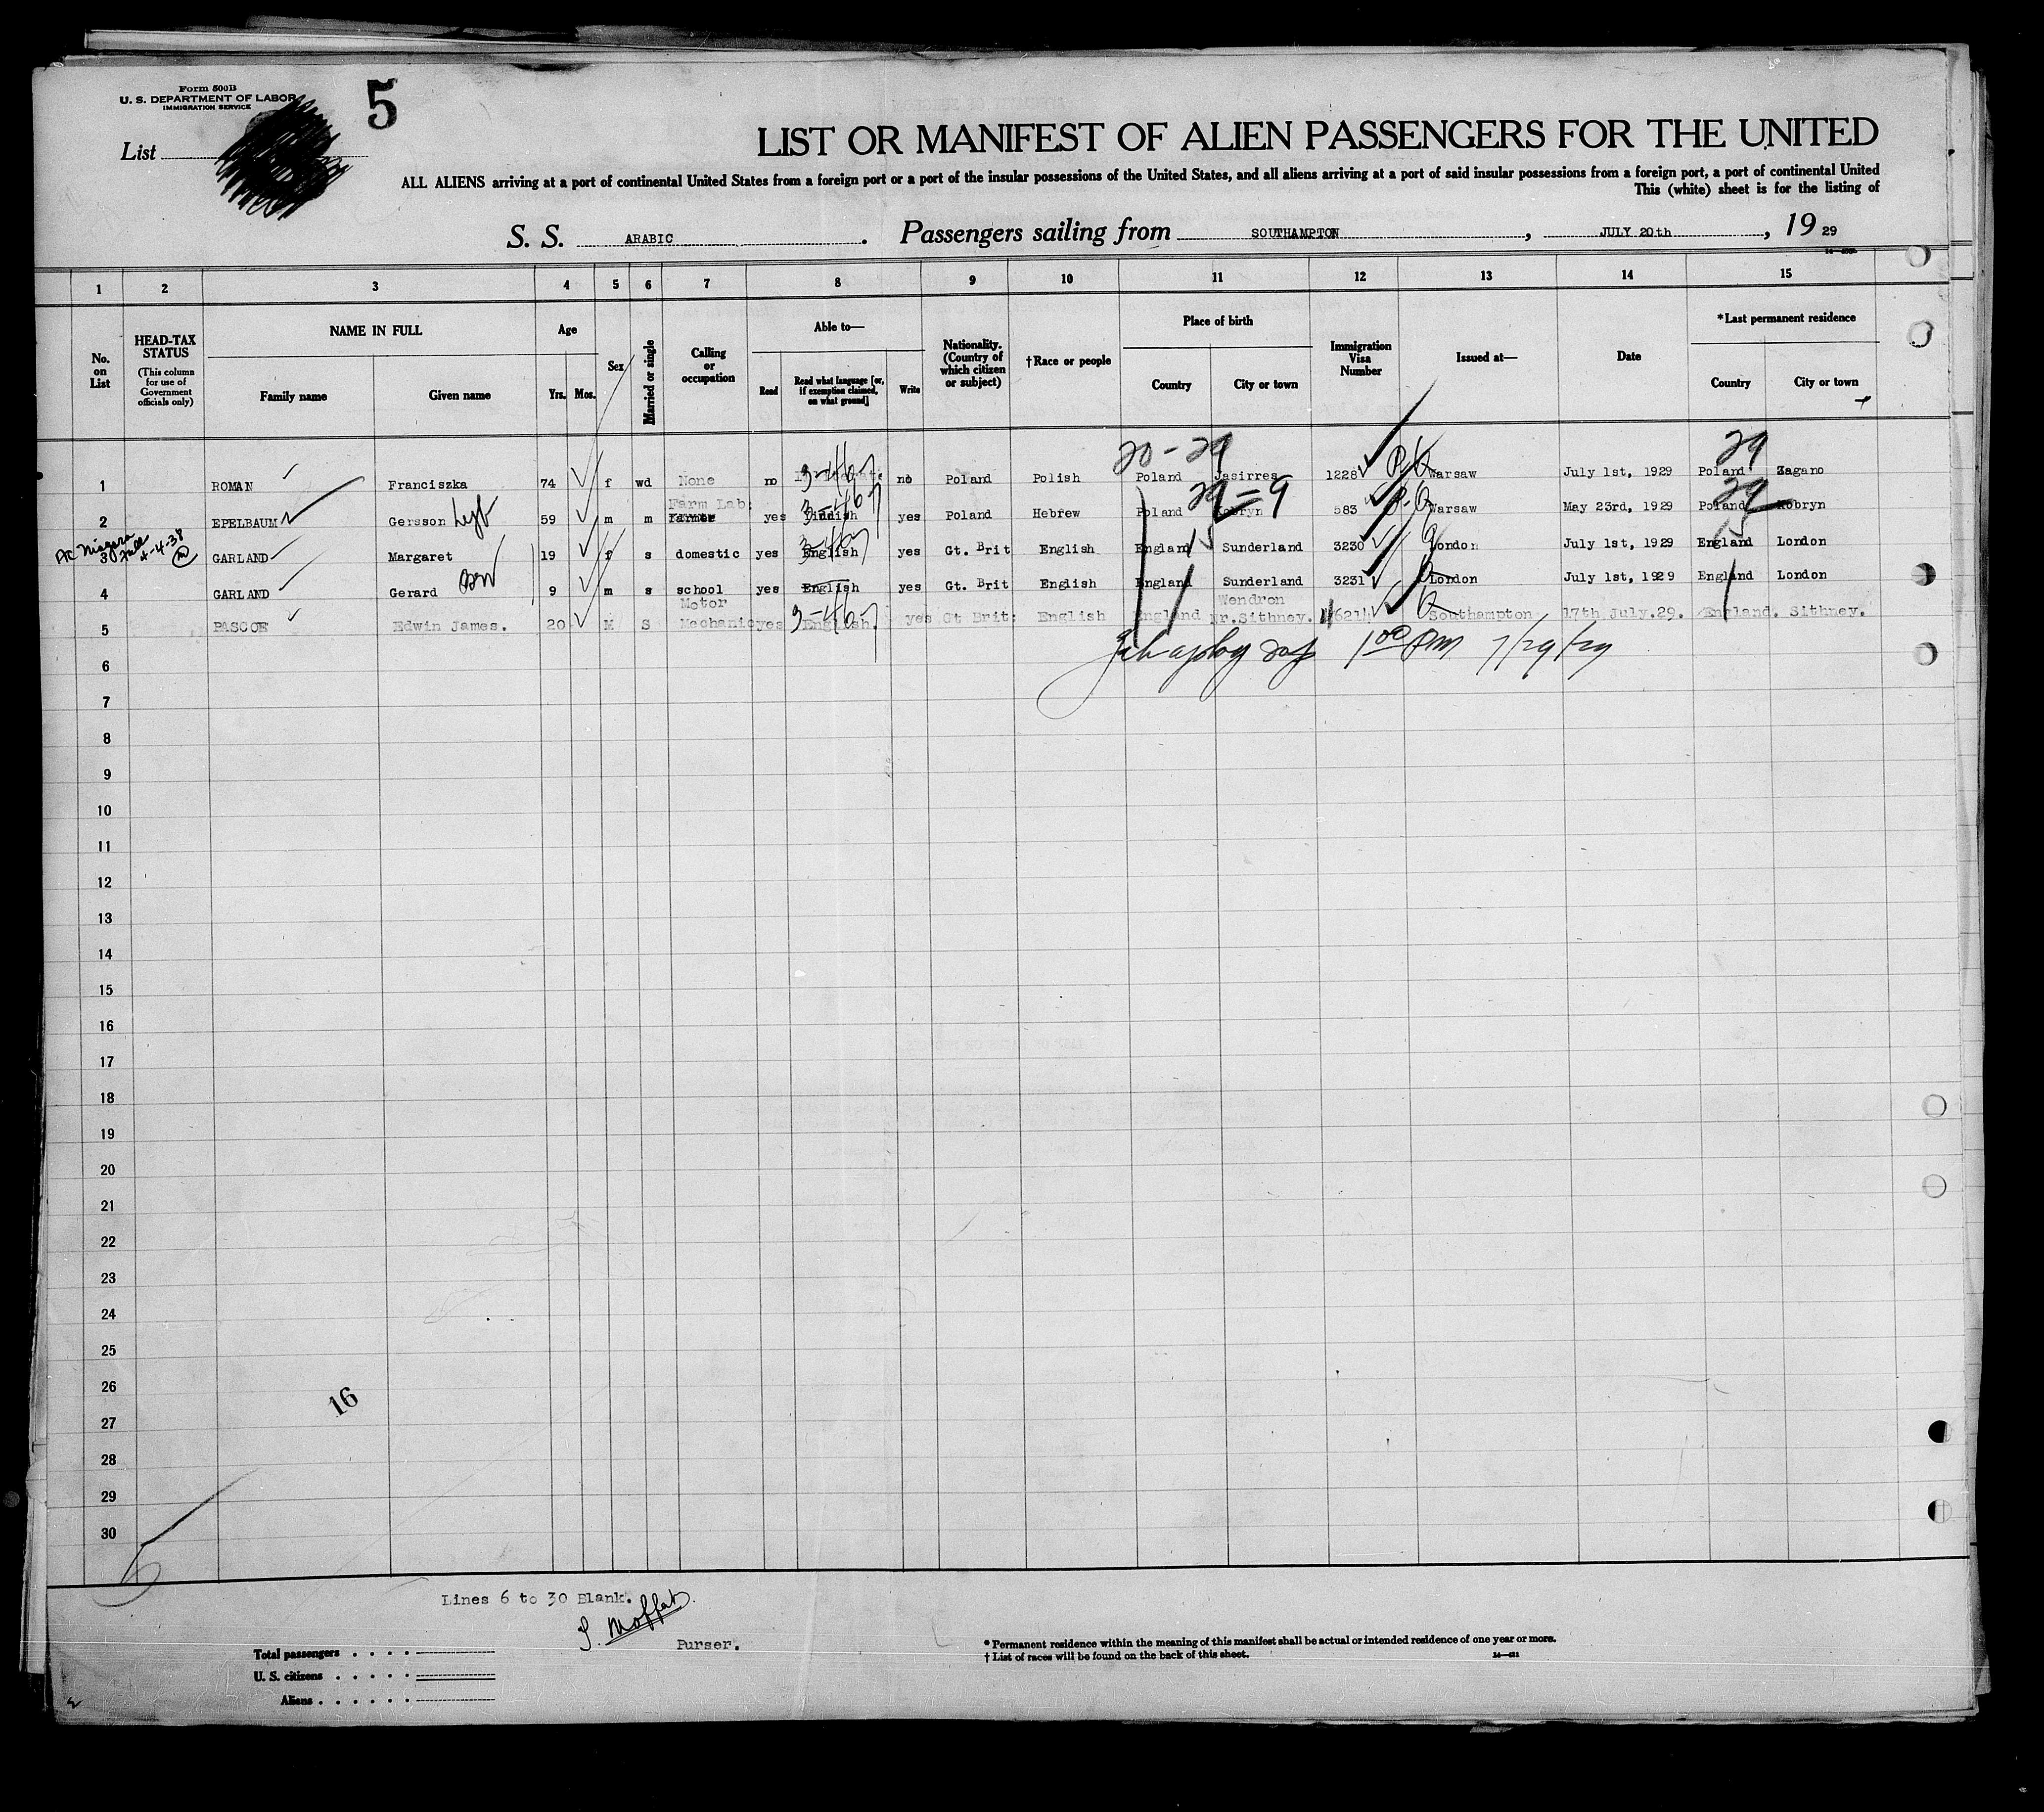 Form 500B
U. S. DEPARTMENT OF LABOR
IMMIGRATION SERVICE
5
List
LIST OR MANIFEST OF ALIEN PASSENGERS FOR THE UNITED
ALL ALIENS arriving at a port of continental United States from a foreign port or a port of the insular possessions of the United States, and all aliens arriving at a port of said insular possessions from a foreign port, a port of continental United
This (white) sheet is for the listing of
S. S. ARABIC. Passengers sailing from SOUTHAMPTON, JULY 20th, 19 29
1 2 3 4 5 6 7 8 9 10 11 12 13 14 15
No. on List
HEAD-TAX STATUS (This column for use of Government officials only)
NAME IN FULL
Family name Given name
Age
Yrs. Mos.
Sex
Married or single
Calling or occupation
Able to—
Read
Read what language [or, if exemption claimed, on what ground]
Write
Nationality. (Country of which citizen or subject)
†Race or people
Place of birth
Country City or town
Immigration Visa Number
Issued at—
Date
*Last permanent residence
Country City or town
20-29 29
1 ROMAN Franciszka 74 f wd None no 3-467 no Poland Polish Poland Jasirres 1228 Warsaw July 1st, 1929 Poland Zagano
29=9 29
2 EPELBAUM Gersson Leyb 59 m m Farm Lab. farmer yes Yiddish 3-467 yes Poland Hebrew Poland Kobryn 583 Warsaw May 23rd, 1929 Poland Kobryn
Niagara Falls 4-4-38
3 GARLAND Margaret 19 f s domestic yes English 3-467 yes Gt. Brit English England 15 Sunderland 3230 London July 1st, 1929 England 15 London
4 GARLAND Gerard 9 m s school yes English yes Gt. Brit English England Sunderland 3231 London July 1st, 1929 England London
5 PASCOE Edwin James. 20 M S Motor Mechanic yes English. 3-467 yes Gt Brit: English England Wendron nr.Sithney. 6214 Southampton 17th July.29. England. Sithney.
1 00 PM 7/29/29
6
7
8
9
10
11
12
13
14
15
16
17
18
19
20
21
22
23
24
25
26
16
27
28
29
30
5
Lines 6 to 30 Blank.
J. Moffat
Purser.
Total passengers
U. S. citizens
Aliens
* Permanent residence within the meaning of this manifest shall be actual or intended residence of one year or more.
† List of races will be found on the back of this sheet.